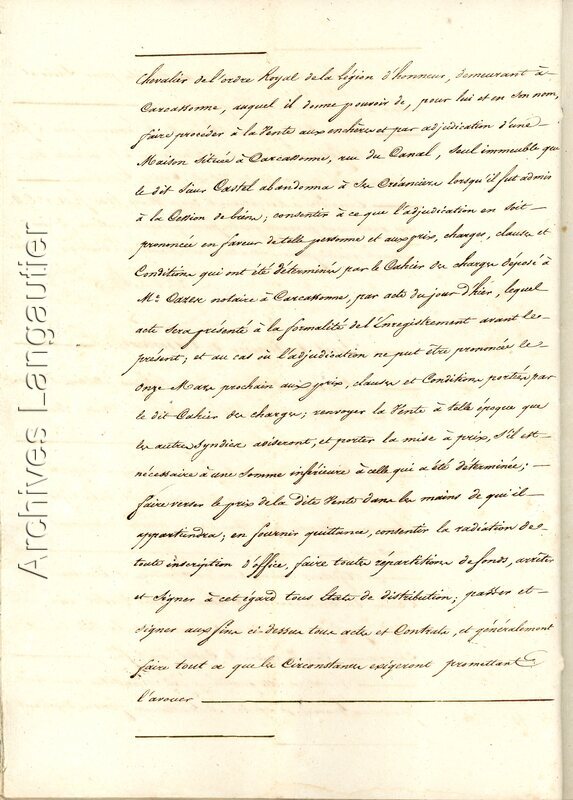 Chevalier de l'ordre Royal de la légion d'honneur, demeurant à
Carcassonne, auquel il donne pouvoir de, pour lui et en son nom,
faire procéder à la Vente aux enchères et par adjudication d'une
Maison située à Carcassonne, rue du Canal, seul immeuble que
le dit Sieur Castel abandonna à Ses Créanciers lorsqu'il fut admis
à la Cession de biens; consentir à ce que l'adjudication en soit
prononcée en faveur de telle personne et aux prix, charges, clauses et
Conditions qui ont été déterminés par le Cahier des charges déposé à
Me. notaire à Carcassonne, par acte du jour d'hier, lequel
acte Sera présenté à la formalité de l'Enregistrement avant le
présent; et au cas où l'adjudication ne put être prononcée le
Onze Mars prochain aux prix, clauses et Conditions portées par
le dit Cahier des charges; renvoyer la Vente à telle époque que
les autres Syndics aviseront, et porter la mise à prix, S'il est
nécessaire à une Somme inférieure à celle qui a été déterminée;
faire verser le prix de la dite Vente dans les mains de qui il
appartiendra; en fournir quittance, consentir la radiation de
toute inscription d'office, faire toutes répartitions de fonds, arrêter
et Signer à cet égard tous États de distribution; passer et
Signer aux fins ci-dessus tous actes et Contrats, et généralement
faire tout ce que les Circonstances exigeront promettant
l'avouer
Archives Langautier